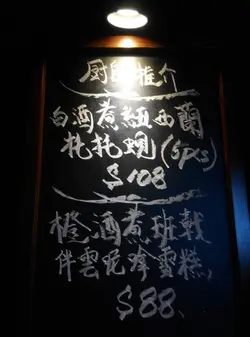 厨師推介
白酒煮紐西蘭
牝牝蜆(5pcs)
$108
橙酒煮班戟
伴雲呢拿雪糕
$88